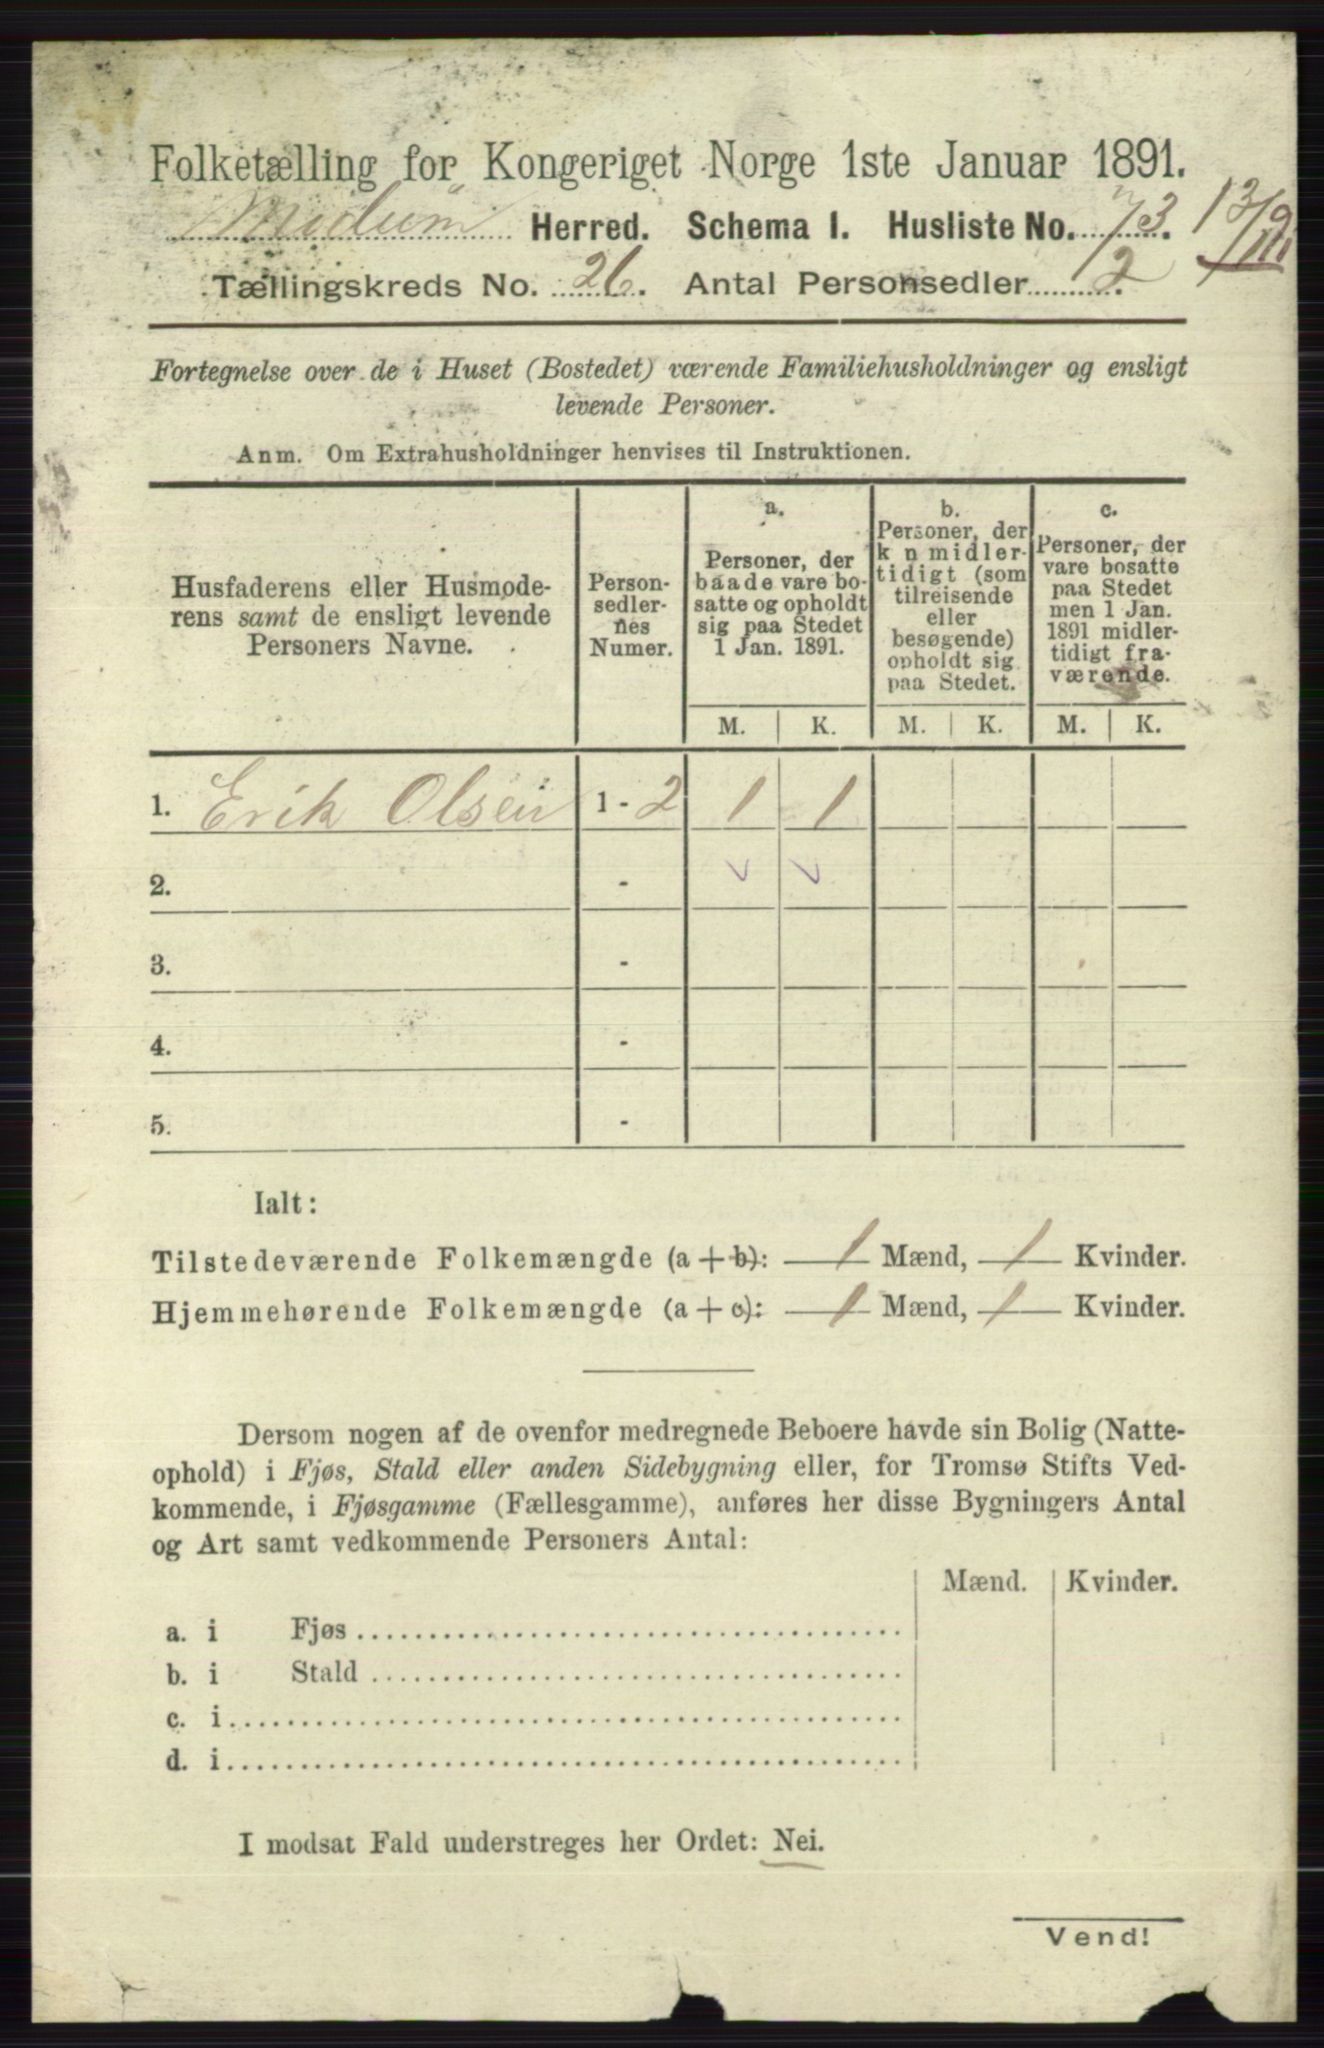 Folketælling for Kongeriget Norge 1ste Januar 1891.
Modum Herred. Schema I. Husliste No. 73.
Tællingskreds No. 26. Antal Personsedler 2.
Fortegnelse over de i Huset (Bostedet) værende Familiehusholdninger og ensligt
levende Personer.
Anm. Om Extrahusholdninger henvises til Instruktionen.
Husfaderens eller Husmode-
rens samt de ensligt levende
Personers Navne.
Person-
sedler-
nes
Numer.
a.
Personer, der
baade vare bo-
satte og opholdt
sig paa Stedet
1 Jan. 1891.
b.
Personer, der
k n midler-
tidigt (som
tilreisende
eller
besøgende)
opholdt sig
paa Stedet.
c.
Personer, der
vare bosatte
paa Stedet
men 1 Jan.
1891 midler-
tidigt fra-
værende.
M. K. M. K. M. K.
1. Erik Olsen 1 - 2 1 1
2. -
3. -
4. -
5. -
Ialt:
Tilstedeværende Folkemængde (a + b): 1 Mænd, 1 Kvinder.
Hjemmehørende Folkemængde (a + c): 1 Mænd, 1 Kvinder.
Dersom nogen af de ovenfor medregnede Beboere havde sin Bolig (Natte-
ophold) i Fjøs, Stald eller anden Sidebygning eller, for Tromsø Stifts Ved-
kommende, i Fjøsgamme (Fællesgamme), anføres her disse Bygningers Antal
og Art samt vedkommende Personers Antal:
Mænd. Kvinder.
a. i Fjøs
b. i Stald
c. i
d. i
I modsat Fald understreges her Ordet: Nei.
Vend!